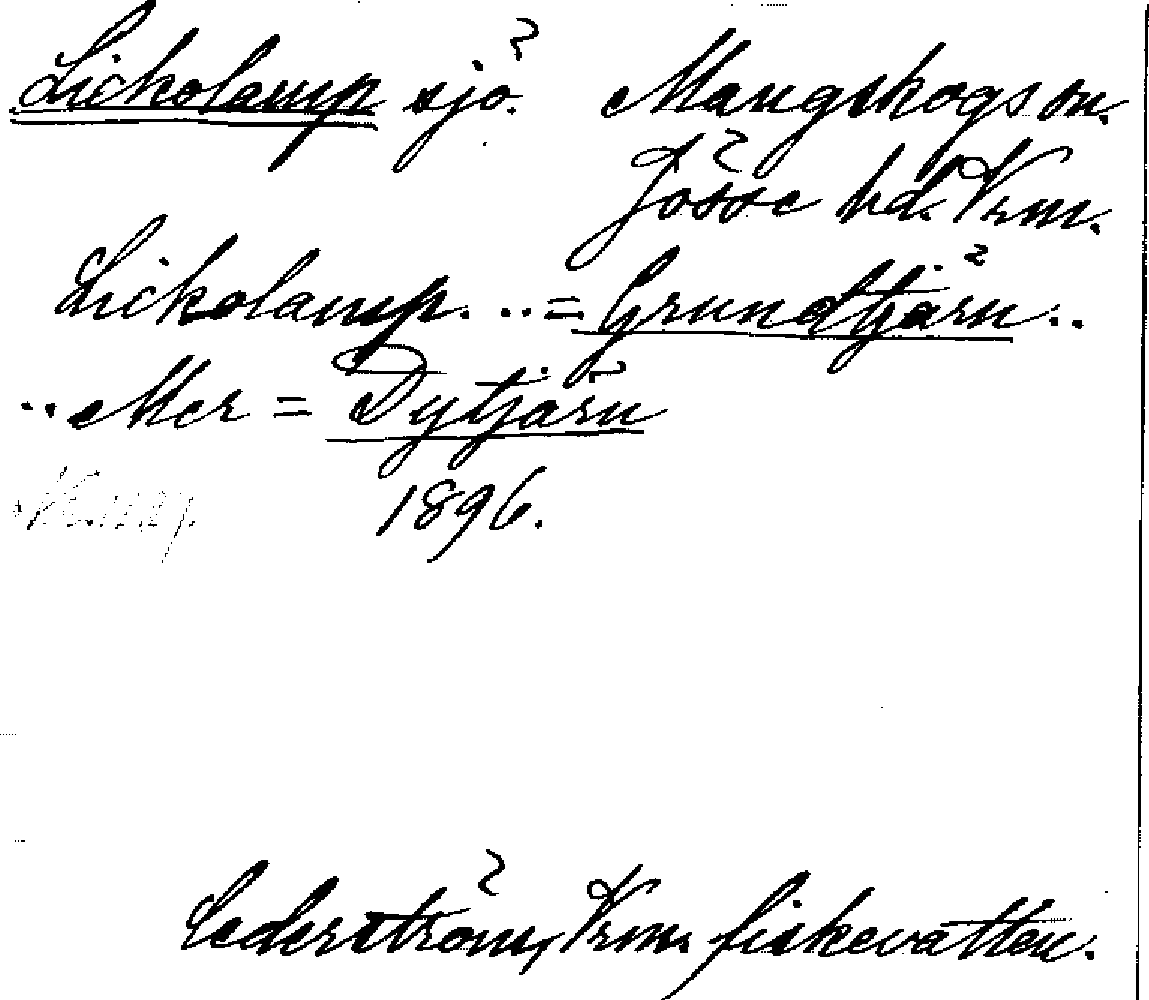 Lickolamp sjö. Mangskogs sn.
Jösse hd. Vrm.
Lickolamp. .. = Grundtjärn ..
.. Mer = Dytjärn
1896.
Cederström, Vrm. fiskevatten.